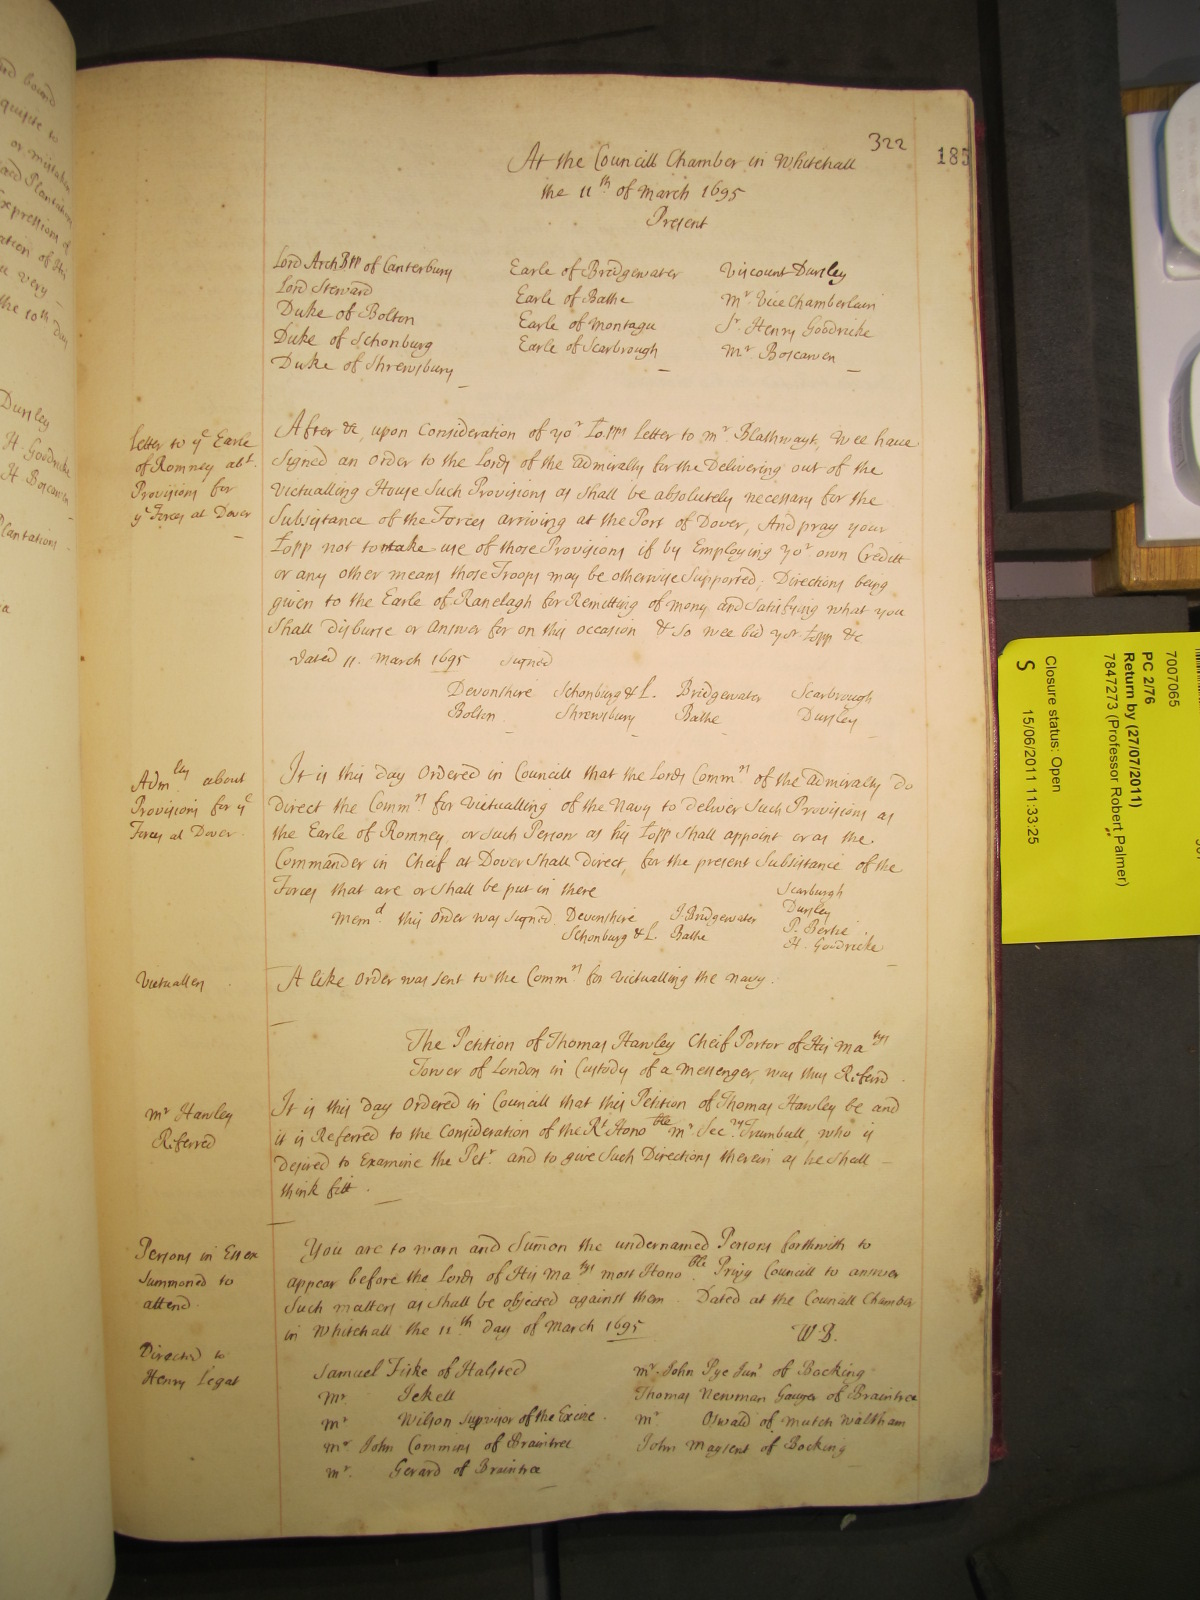 322
185
At the Councill Chamber in Whitehall
the 11th of March 1695
Present
Lord ArchBpp of Canterbury
Lord Steward
Duke of Bolton
Duke of Schonburg
Duke of Shrewsbury
Earle of Bridgewater
Earle of Bathe
Earle of Montagu
Earle of Scarbrough
Viscount Dursley
Mr Vice Chamberlain
Sr Henry Goodricke
Mr Boscawen
Letter to ye Earle
of Romney abt.
Provisions for
ye Forces at Dover
After &c, upon Consideration of yor Lopps Letter to Mr Blathwayt, Wee have
Signed an Order to the Lords of the Admiralty for the Delivering out of the
Victualling House Such Provisions as Shall be absolutely necessary for the
Subsistance of the Forces arriving at the Port of Dover, And pray your
Lopp not to make use of those Provisions if by Employing yor own Creditt
or any other means those Troops may be otherwise Supported; Directions being
given to the Earle of Ranelagh for Remitting of mony and Satisfying what you
Shall disburse or Answer for on this occasion & so wee bid yor Lopp &c
Dated 11. March 1695 Signed
Devonshire Schonburg & L. Bridgewater Scarbrough
Bolton Shrewsbury Bathe Dursley
Admlty about
Provisions for ye
Forces at Dover
It is this day Ordered in Councill that the Lords Commrs of the Admiralty do
direct the Commrs for Victualling of the Navy to deliver Such Provisions as
the Earle of Romney, or Such Person as his Lopp Shall appoint or as the
Commander in Cheif at Dover Shall Direct, for the present Subsistance of the
Forces that are or Shall be put in there
Memd. this Order was Signed Devonshire J. Bridgewater
Schonburg & L. Bathe
Scarburgh
Dursley
P. Bertie
H. Goodricke
Victuallers
A like Order was sent to the Commrs for Victualling the Navy.
The Petition of Thomas Hawley Cheif Porter of His Matys
Tower of London in Custody of a Messenger, was thus Referrd
Mr Hawley
Referred
It is this day Ordered in Councill that this Petition of Thomas Hawley be and
it is Referred to the Consideration of the Rt Honoble Mr Secry Trumbull, who is
desired to Examine the Petr. and to give Such Directions therein as he Shall
think fitt.
Persons in Essex
Summoned to
attend.
Directed to
Henry Legat
You are to warn and Sum̄on the undernamed Persons forthwith to
appear before the Lords of His Matys most Honoble Privy Councill to answer
Such matters as Shall be objected against them. Dated at the Councill Chamber
in Whitehall the 11th day of March 1695 W.B.
Samuel Fiske of Halsted
Mr Jekell
Mr Wilson Supvisor of the Excise.
Mr John Commins of Braintree
Mr. Gerard of Braintree
Mr. John Pye Junr of Bocking
Thomas Newman Gauger of Braintree
Mr Oswald of Much Waltham
John Maysent of Bocking
7007065
PC 2/76
Return by (27/07/2011)
7847273 (Professor Robert Palmer)
Closure status: Open
S 15/06/2011 11:33:25